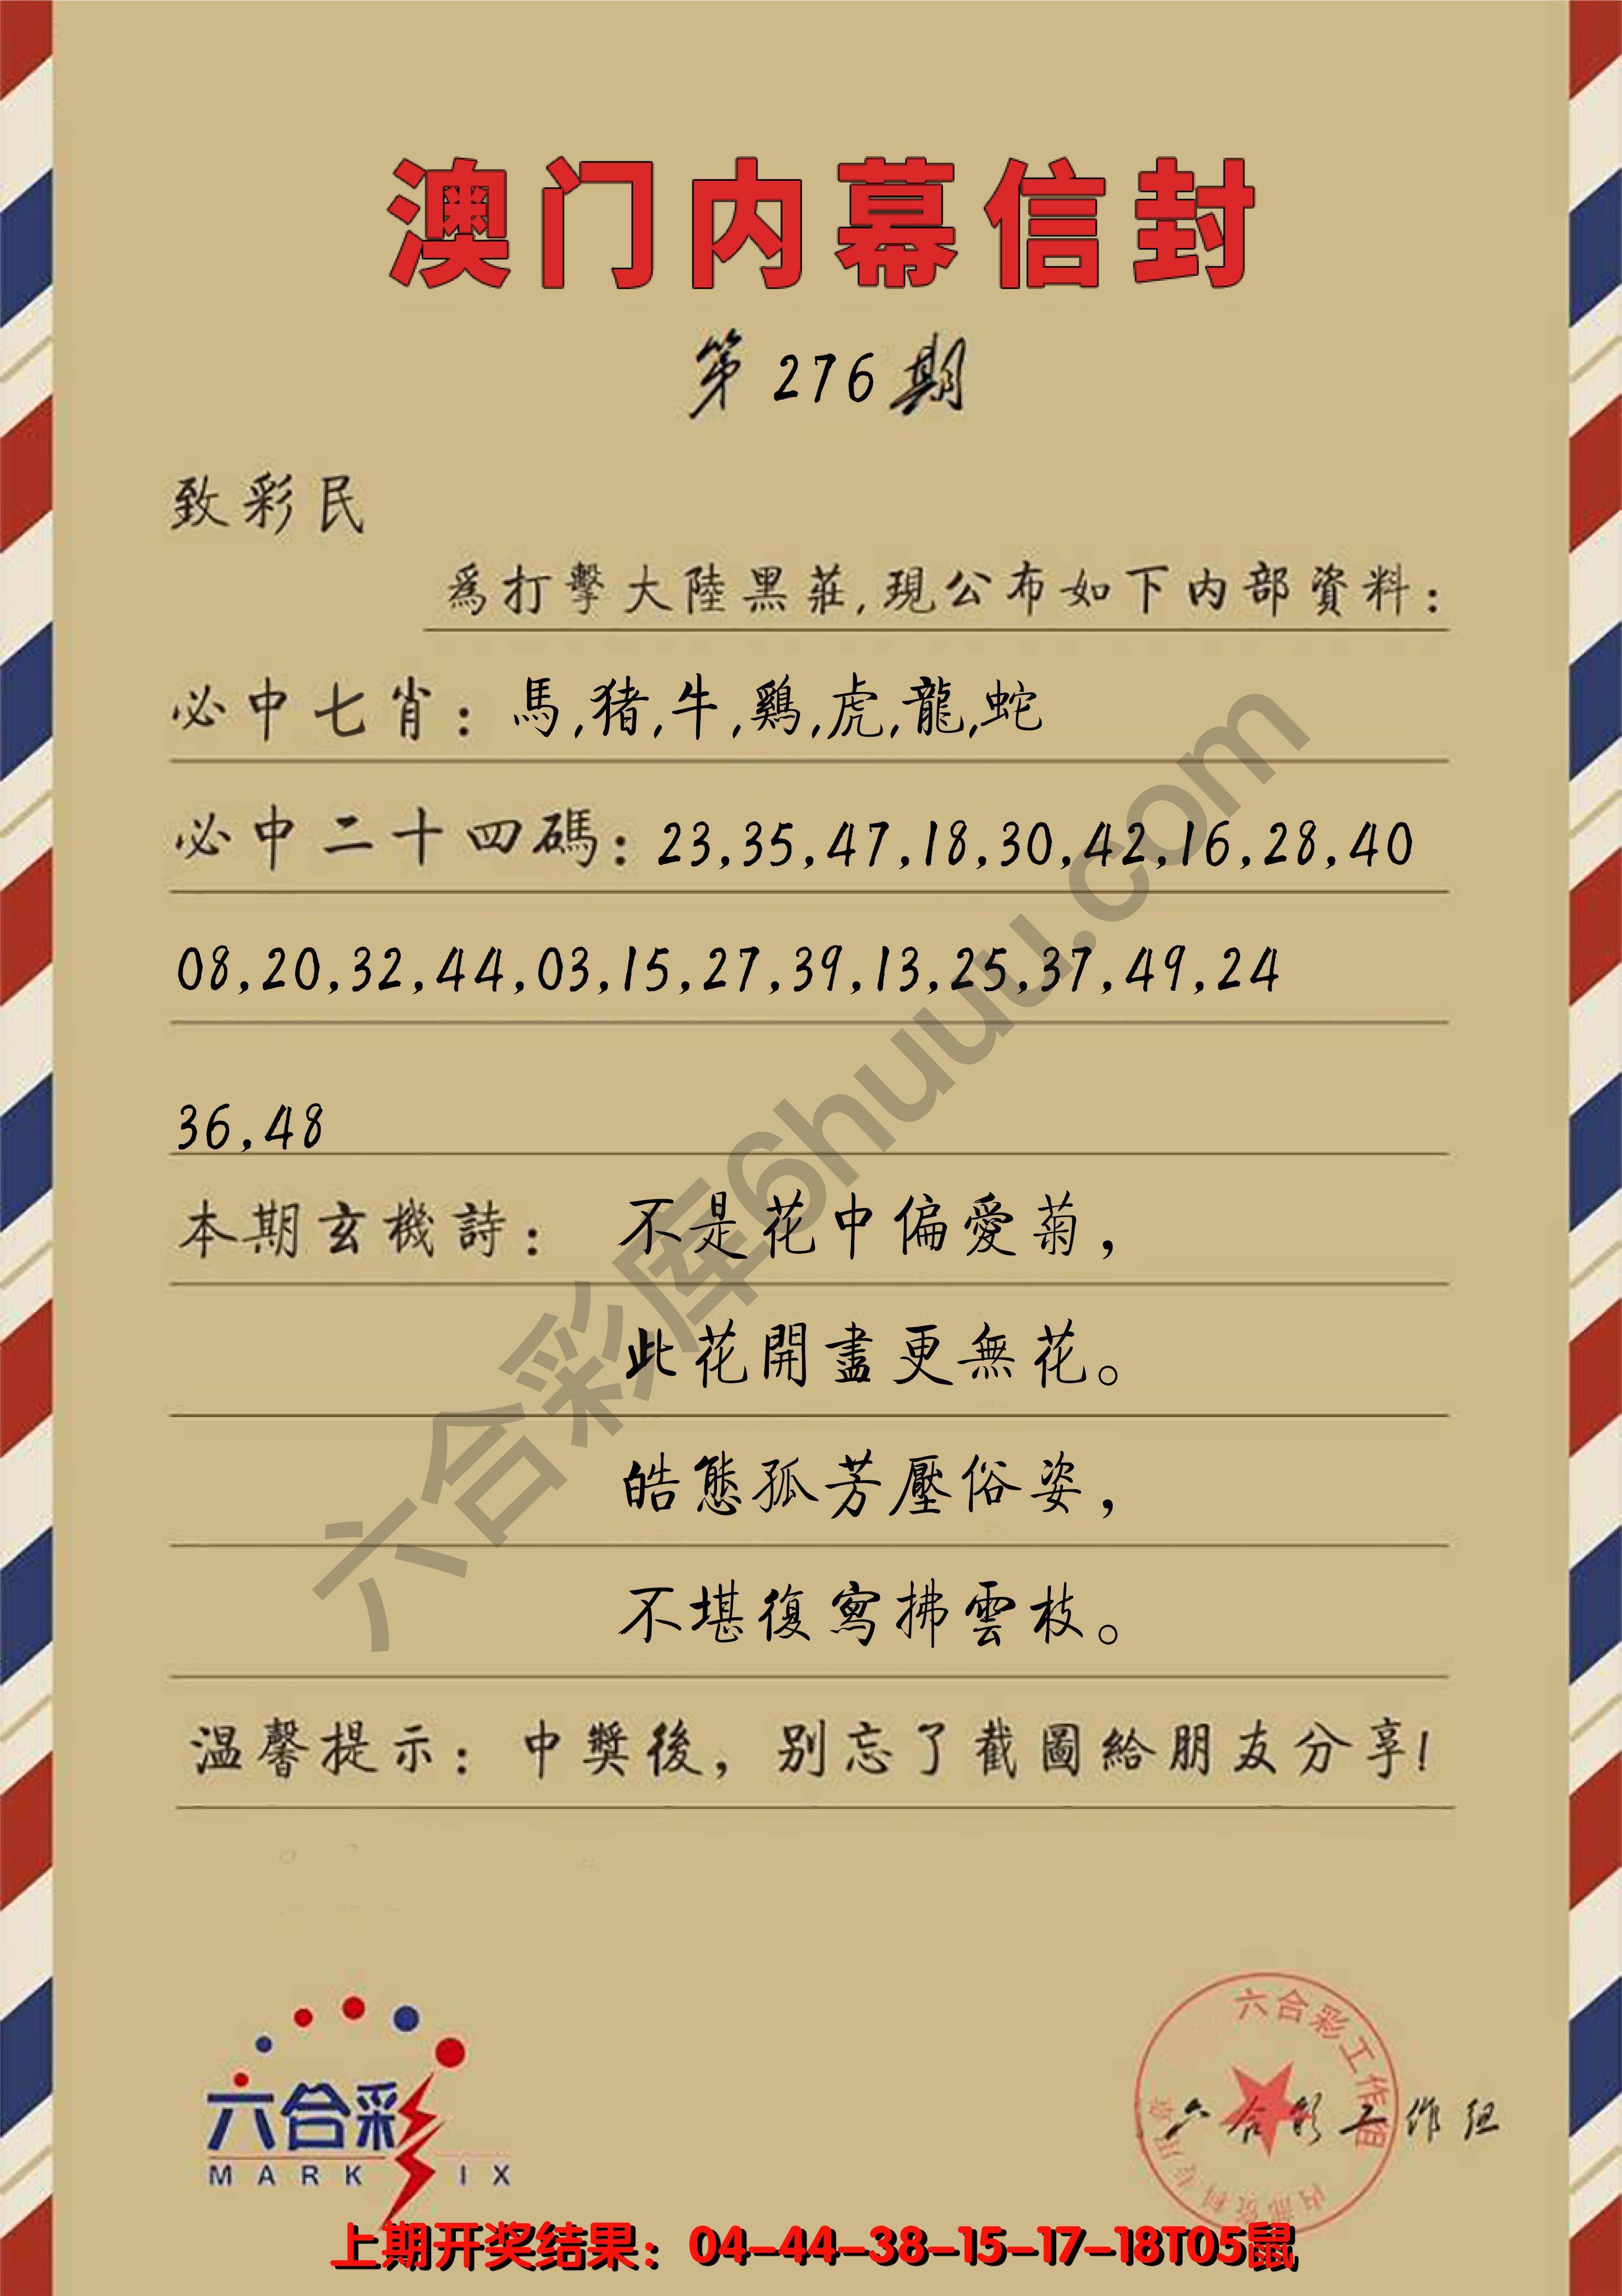 澳门内幕信封
第276期
致彩民
爲打擊大陸黑莊,現公布如下内部資料：
必中七肖：馬,猪,牛,鷄,虎,龍,蛇
必中二十四碼：23,35,47,18,30,42,16,28,40
08,20,32,44,03,15,27,39,13,25,37,49,24
36,48
本期玄機詩： 不是花中偏愛菊，
此花開盡更無花。
皓態孤芳壓俗姿，
不堪復寫拂雲枝。
温馨提示：中獎後，别忘了截圖給朋友分享!
六合彩库6huuu.com
六合彩
MARK IX
六合彩工作组
内部资料专用章
六合彩工作组
上期开奖结果：04-44-38-15-17-18T05鼠